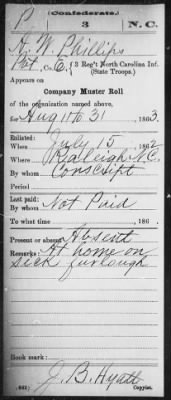 P
(Confederate.)
3
N. C.
H. W. Phillips
Pvt, Co. E, 3 Reg't North Carolina Inf.
(State Troops.)
Appears on
Company Muster Roll
of the organization named above,
for Aug 11 to 31, 1863.
Enlisted:
When July 15, 1862
Where Raleigh N.C.
By whom Conscript
Period
Last paid:
By whom Not Paid
To what time , 186 .
Present or absent Absent
Remarks: At home on
sick furlough
Book mark:
J. B. Hyatt
(642)
Copyist.